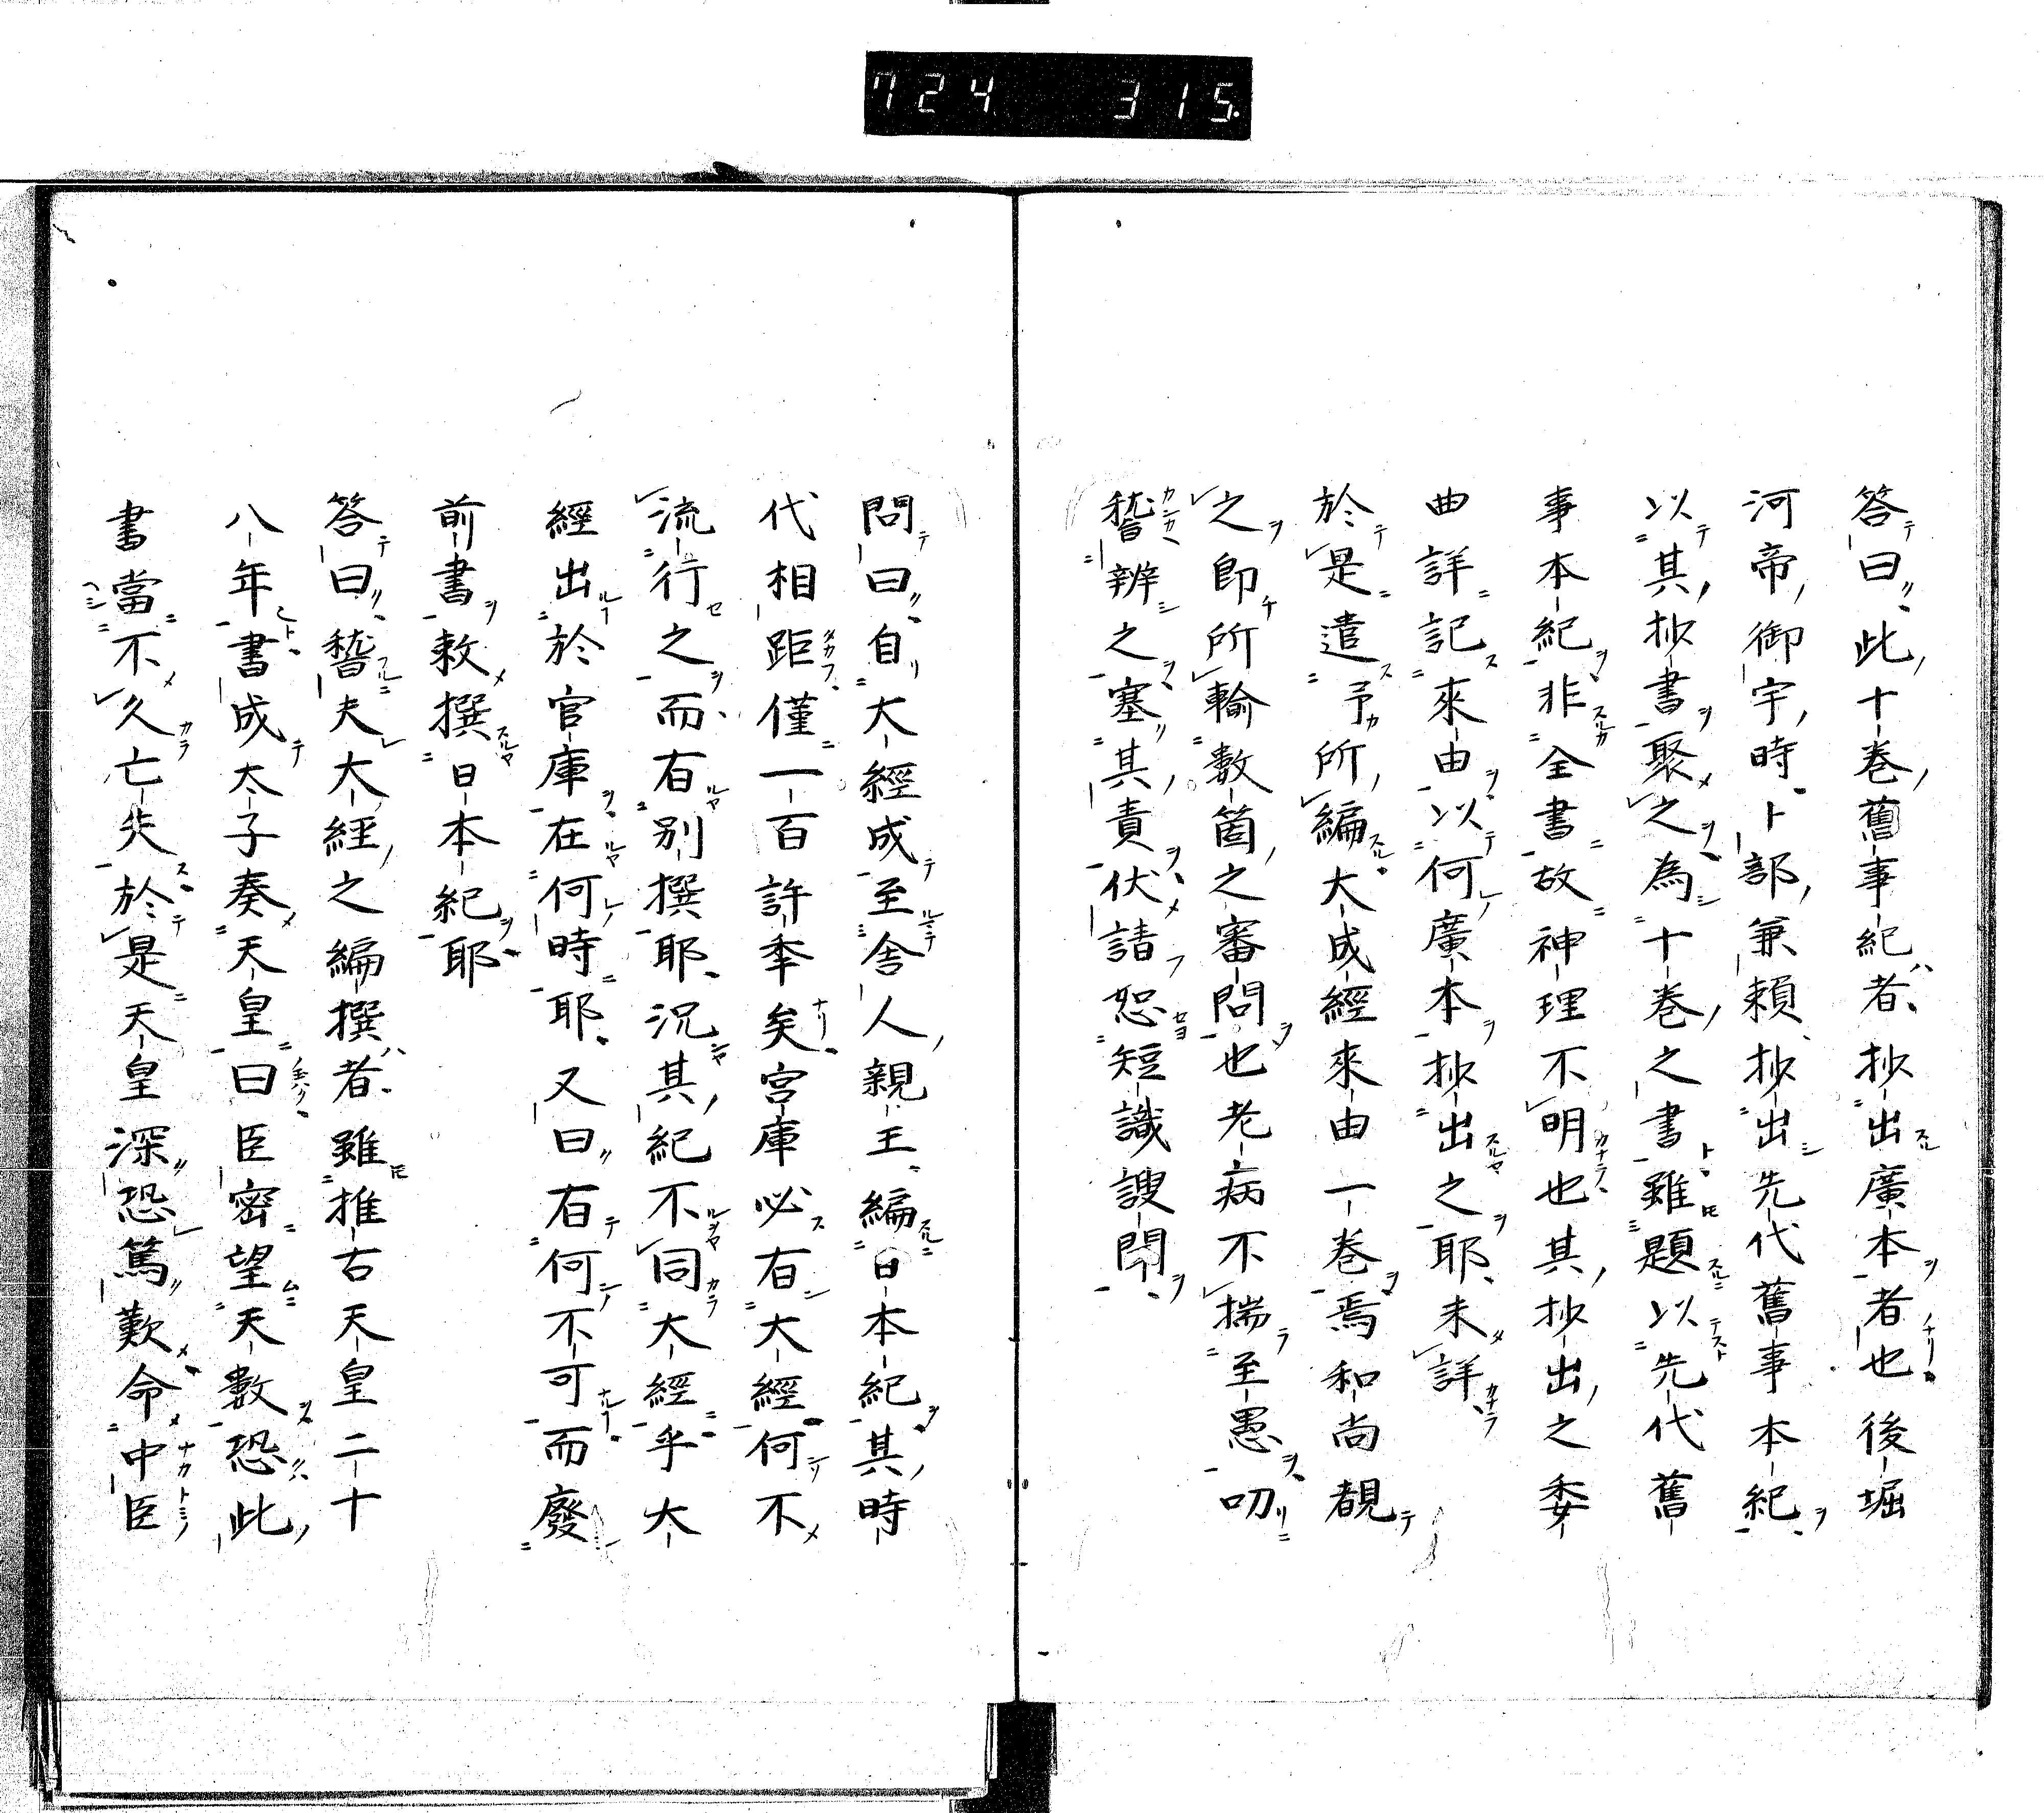 724 315
答曰此十卷舊事紀者抄出廣本者也後堀
河帝御宇時卜部兼賴抄出先代舊事本紀
以其抄書聚之為十卷之書雖題以先代舊
事本紀非全書故神理不明也其抄出之委
曲詳記來由以何廣本抄出之耶未詳
於是遣予所編大成經來由一卷焉和尚覩
之即所輸數箇之審問也老病不揣至愚叨
嵇辨之塞其責伏請恕短識謏聞
問曰自大經成至舍人親王編日本紀其時
代相距僅一百許秊矣宮庫必有大經何不
流行之而有別撰耶況其紀不同大經乎大
經出於官庫在何時耶又曰有何不可而廢
前書敕撰日本紀耶
答曰嵇夫大經之編撰者雖推古天皇二十
八年書成太子奏天皇曰臣密望天數恐此
書當不久亡失於是天皇深恐篤歎命中臣